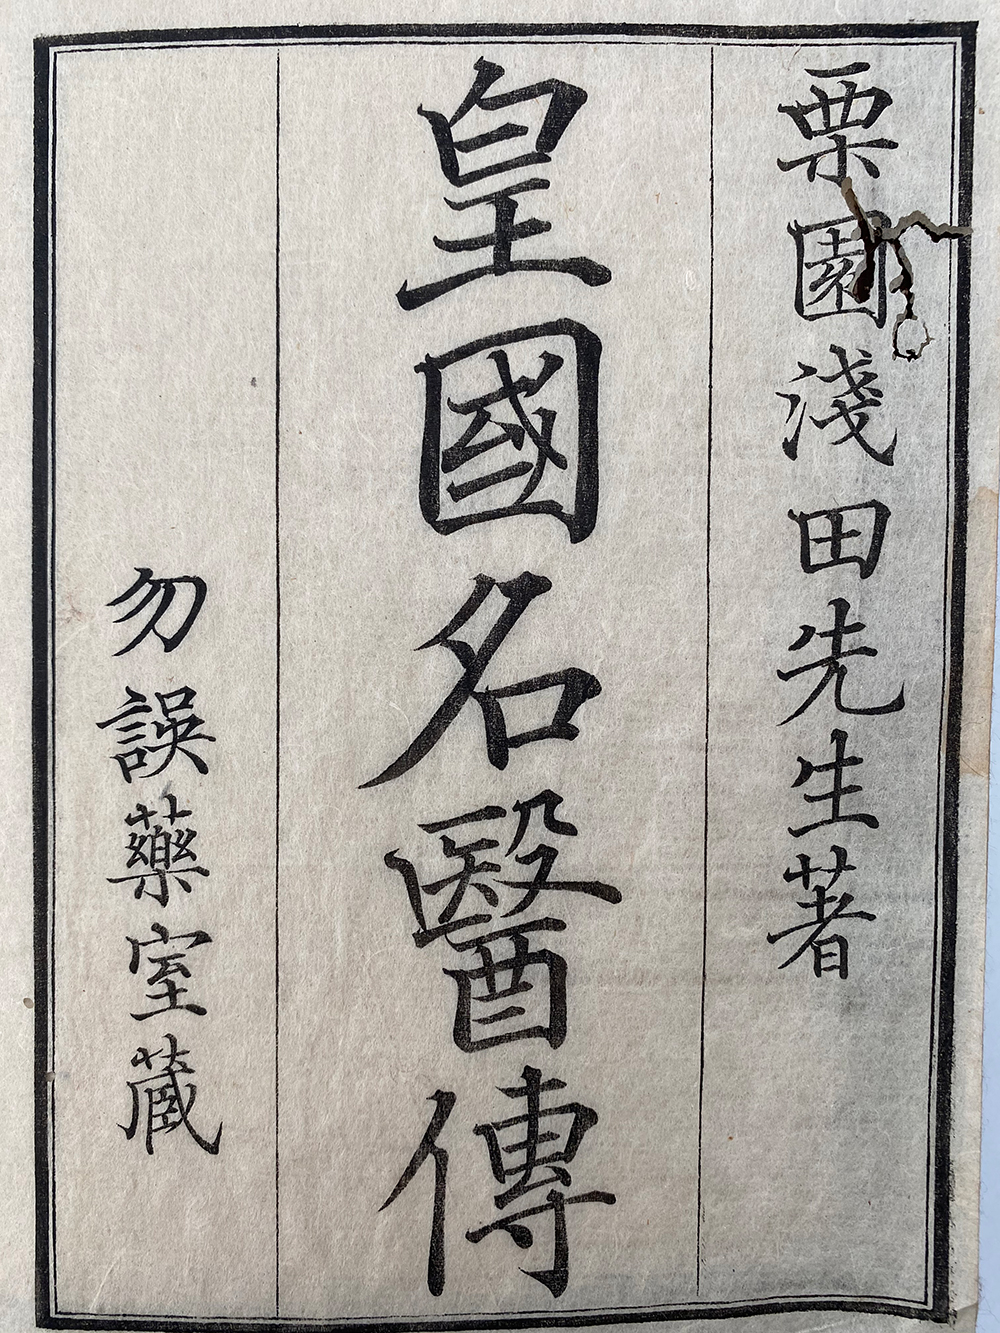 栗園淺田先生著
皇國名醫傳
勿誤藥室蔵